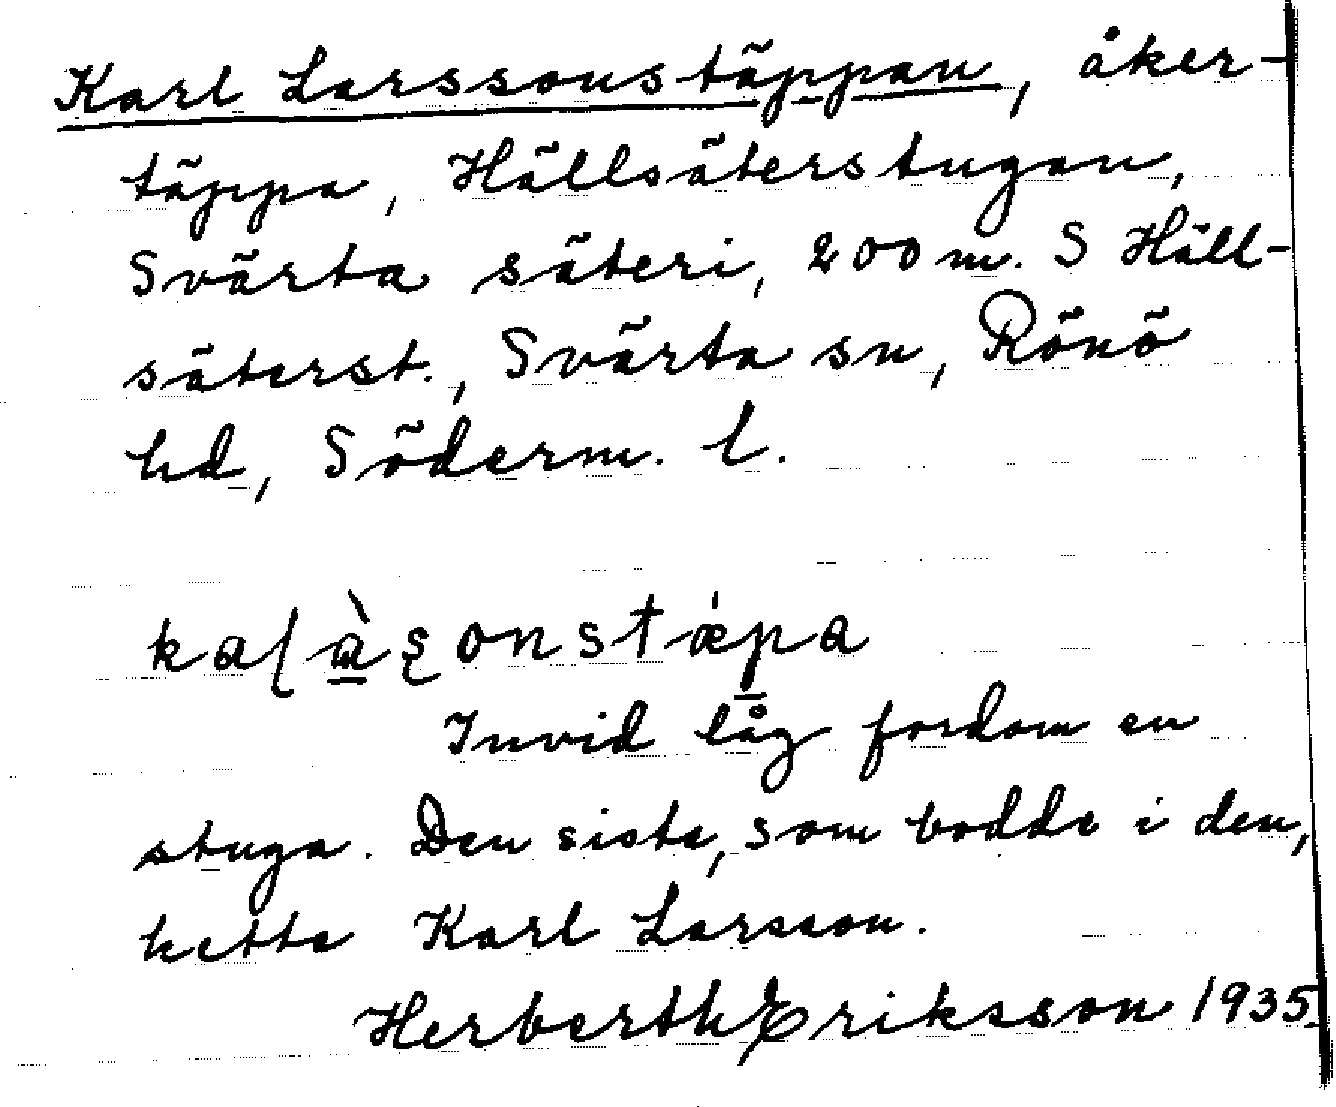 Karl Larssonstäppan, åker-
täppa, Hällsäterstugan,
Svärta säteri, 200 m. S Häll-
säterst., Svärta sn, Rönö
hd, Söderm. l.
Invid låg fordom en
stuga. Den sista, som bodde i den,
hette Karl Larsson.
Herberth Eriksson 1935.